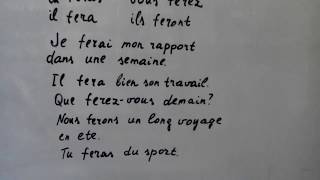 vous ferez
il fera ils feront
Je ferai mon rapport
dans une semaine.
Il fera bien son travail.
Que ferez-vous demain?
Nous ferons un long voyage
en ete.
Tu feras du sport.